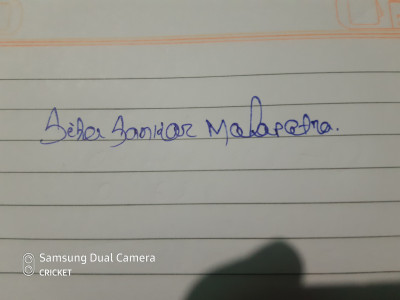 Siba Sankar Mahapatra.
Samsung Dual Camera
CRICKET